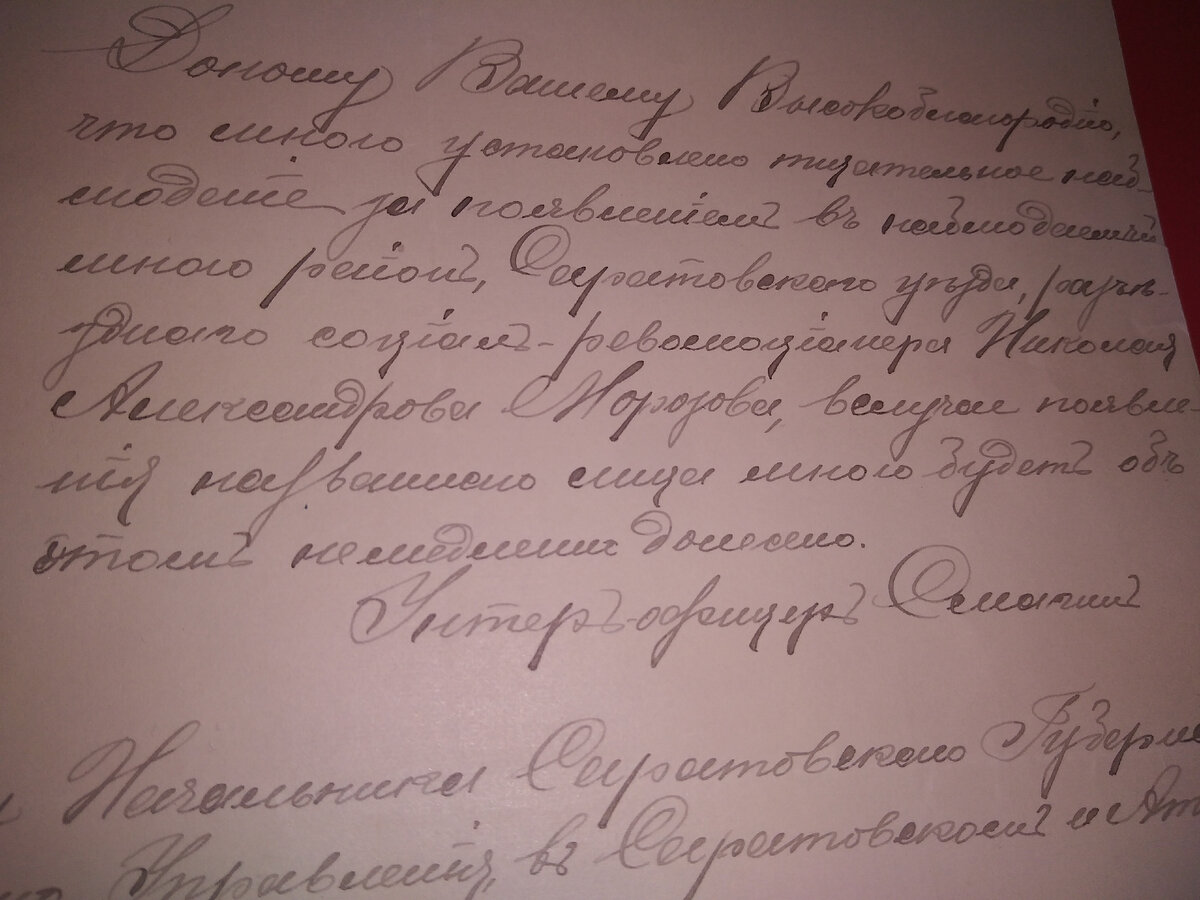 Доношу Вашему Высокоблагородію,
что мною установлено тщательное наб-
люденіе за появленіемъ въ наблюдаемомъ
мною районѣ, Саратовскаго уѣзда,
соціалъ-революціонера Николая
Александрова Морозова, вслучае появле-
нія названнаго лица мною будетъ объ
этомъ немедленно донесено.
Унтеръ-офицеръ
Начальника Саратовскаго Губернс
Управленія, въ Саратовскомъ и Ат